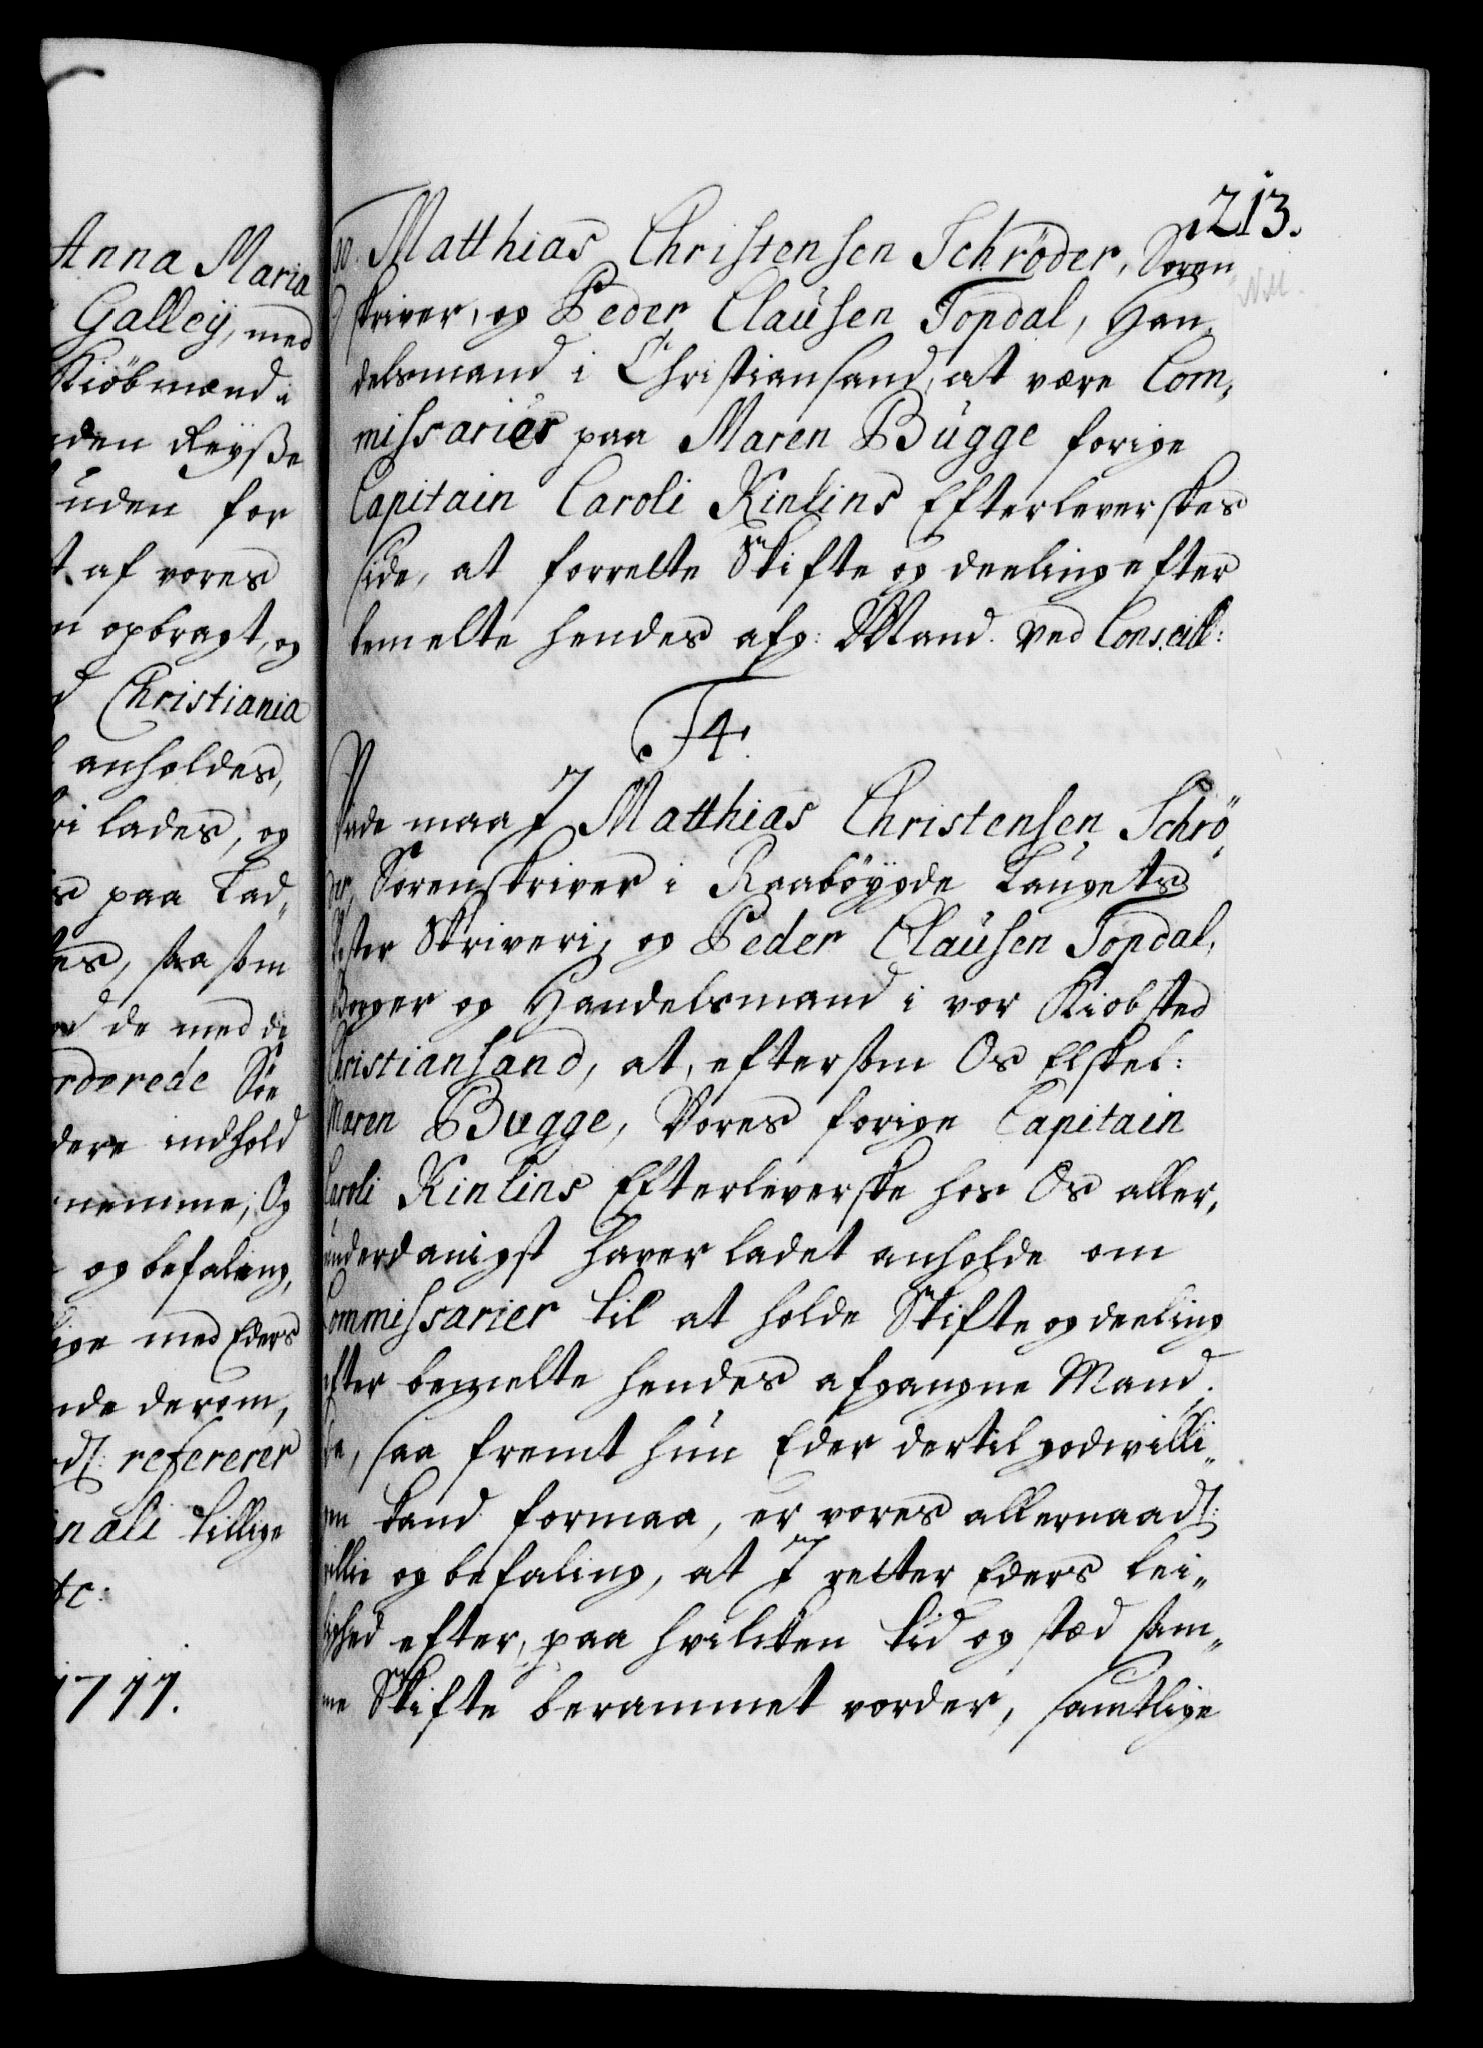 Anna Maria
Galleÿ, med
Kiöbmænd i
den Reyße
uden for
af vores
opbragt, og
Christiania
anholdes,
lades, og
paa Lad„
saa som
de med di
rderede Søe
dere indhold
nemme, Og
og befaling,
med Eders
nde derom,
refererer
nali tillige
tc:
1711.
213.
Matthias Christensen Schröder, Soren„
skriver, og Peder Claüsen Topdal, Han„
delsmand i Christiansand, at være Com„
missarier paa Maren Bügge forige
Capitain Caroli Kinlins Efterleverskes
side, at forrette Skifte og deeling efter
bemelte hendes afg: Mand. Ved Conseill:
F4.
Vide maa I Matthias Christensen Schrö„
der, Sorenskriver i Raabøygde Laugets
Vester Skriveri, og Peder Claüsen Topdal,
Borger og Handelsmand i vor Kiobsted
Christiansand, at, eftersom Os Elskel:
Maren Bugge, Vores forige Capitain
Caroli Kinlins Efterleverske hos Os aller„
underdanigst haver ladet anholde om
Commissarier til at holde Skifte og deeling
efter bemelte hendes afgangne Mand.
da, saa fremt hün Eder dertil godwilli„
gen kand formaa, er vores allernaadl:
villie og befaling, at I retter Eders lei„
lighed efter, paa hvilcken tid og sted sam„
me Skifte berammet vorder, samtlige